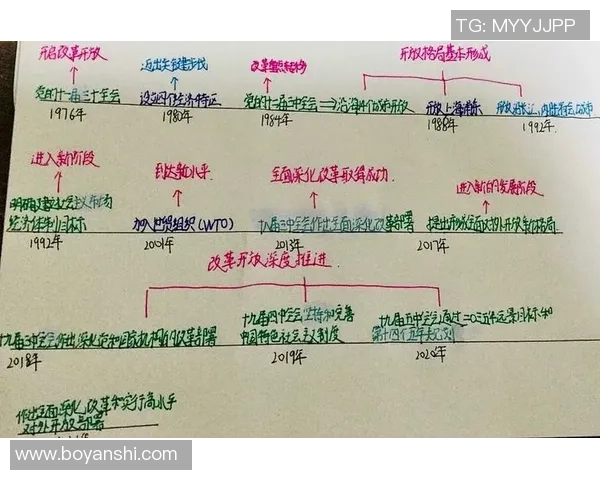 TG: MYYJJPP
开启改革开放
迈出关键步伐
改革重点转移
开放格局基本形成
党的十一届三中全会
设立四个经济特区
党的十二届三中全会⇒沿海14个城市开放
开放上海浦东
1976年
1980年
1984年
1988年
1992年
进入新阶段
到达新水平
全面深化改革取得成功
进入新的发展阶段
明确建立社会主义市场
经济体制目标
加入世贸组织(WTO)
十八届三中全会作出全面深化改革部署
提出形成全面对外开放新格局
1992年
2001年
2013年
2017年
改革开放深度推进
十九届三中全会作出深化党和国家机构的改革部署
十九届四中全会坚持和完善
中国特色社会主义制度
十九届五中全会通过二〇三五年远景目标和
第十四个五年规划
2018年
2019年
2020年
作出全面深化改革和实行高水平
对外开放部署
www.boyanshi.com